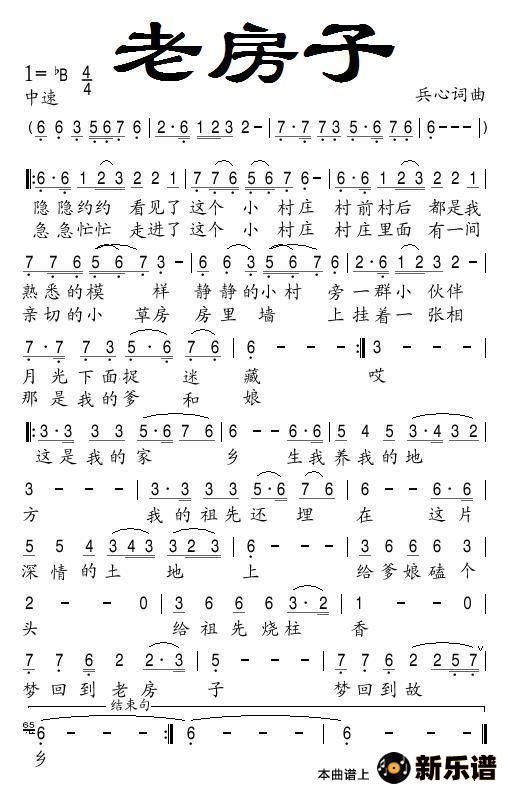 老房子
1= ♭B 4/4
中速
兵心词曲
( 6 6 3 5 6 7 6 | 2 · 6 1 2 3 2 – | 7 · 7 7 3 5 · 6 7 6 | 6 – – – )
‖: 6 · 6 1 2 3 2 2 1 | 7 7 6 5 6 7 6 – | 6 · 6 1 2 3 2 2 1 |
隐隐约约 看见了 这个 小 村庄 村前村后 都是我
急急忙忙 走进了 这个 小 村庄 村庄里面 有一间
7 7 6 5 6 7 3 – | 6 6 3 5 5 6 7 6 | 2 · 6 1 2 3 2 – |
熟悉的模 样 静静的小村 旁一群小 伙伴
亲切的小 草房 房里墙 上挂着一 张相
7 · 7 7 3 5 · 6 7 | 6 – – – :‖ 3 – – – |
月光下面捉 迷 藏 哎
那是我的爹 和 娘
‖: 3 · 3 3 3 5 · 6 7 6 | 6 – – 6 · 6 | 5 4 5 3 · 4 3 2 |
这是我的家 乡 生我养我的地
3 – – – | 3 · 3 3 3 5 · 6 7 | 6 – – 6 · 6 |
方 我的祖先还埋 在 这片
5 5 4 3 4 3 3 2 3 | 6 – – – | 3 6 6 3 |
深情的土 地 上 给爹娘磕个
2 – – 0 | 3 6 6 6 3 · 2 | 1 – – 0 |
头 给祖先烧柱 香
7 7 6 2 2 · 3 | 5 – – – | 7 7 6 2 2 5 7 ∨
梦回到老房 子 梦回到故
结束句
65
6 – – – :‖ 6 – – – | 6 – – – ‖
乡
本曲谱上
新乐谱